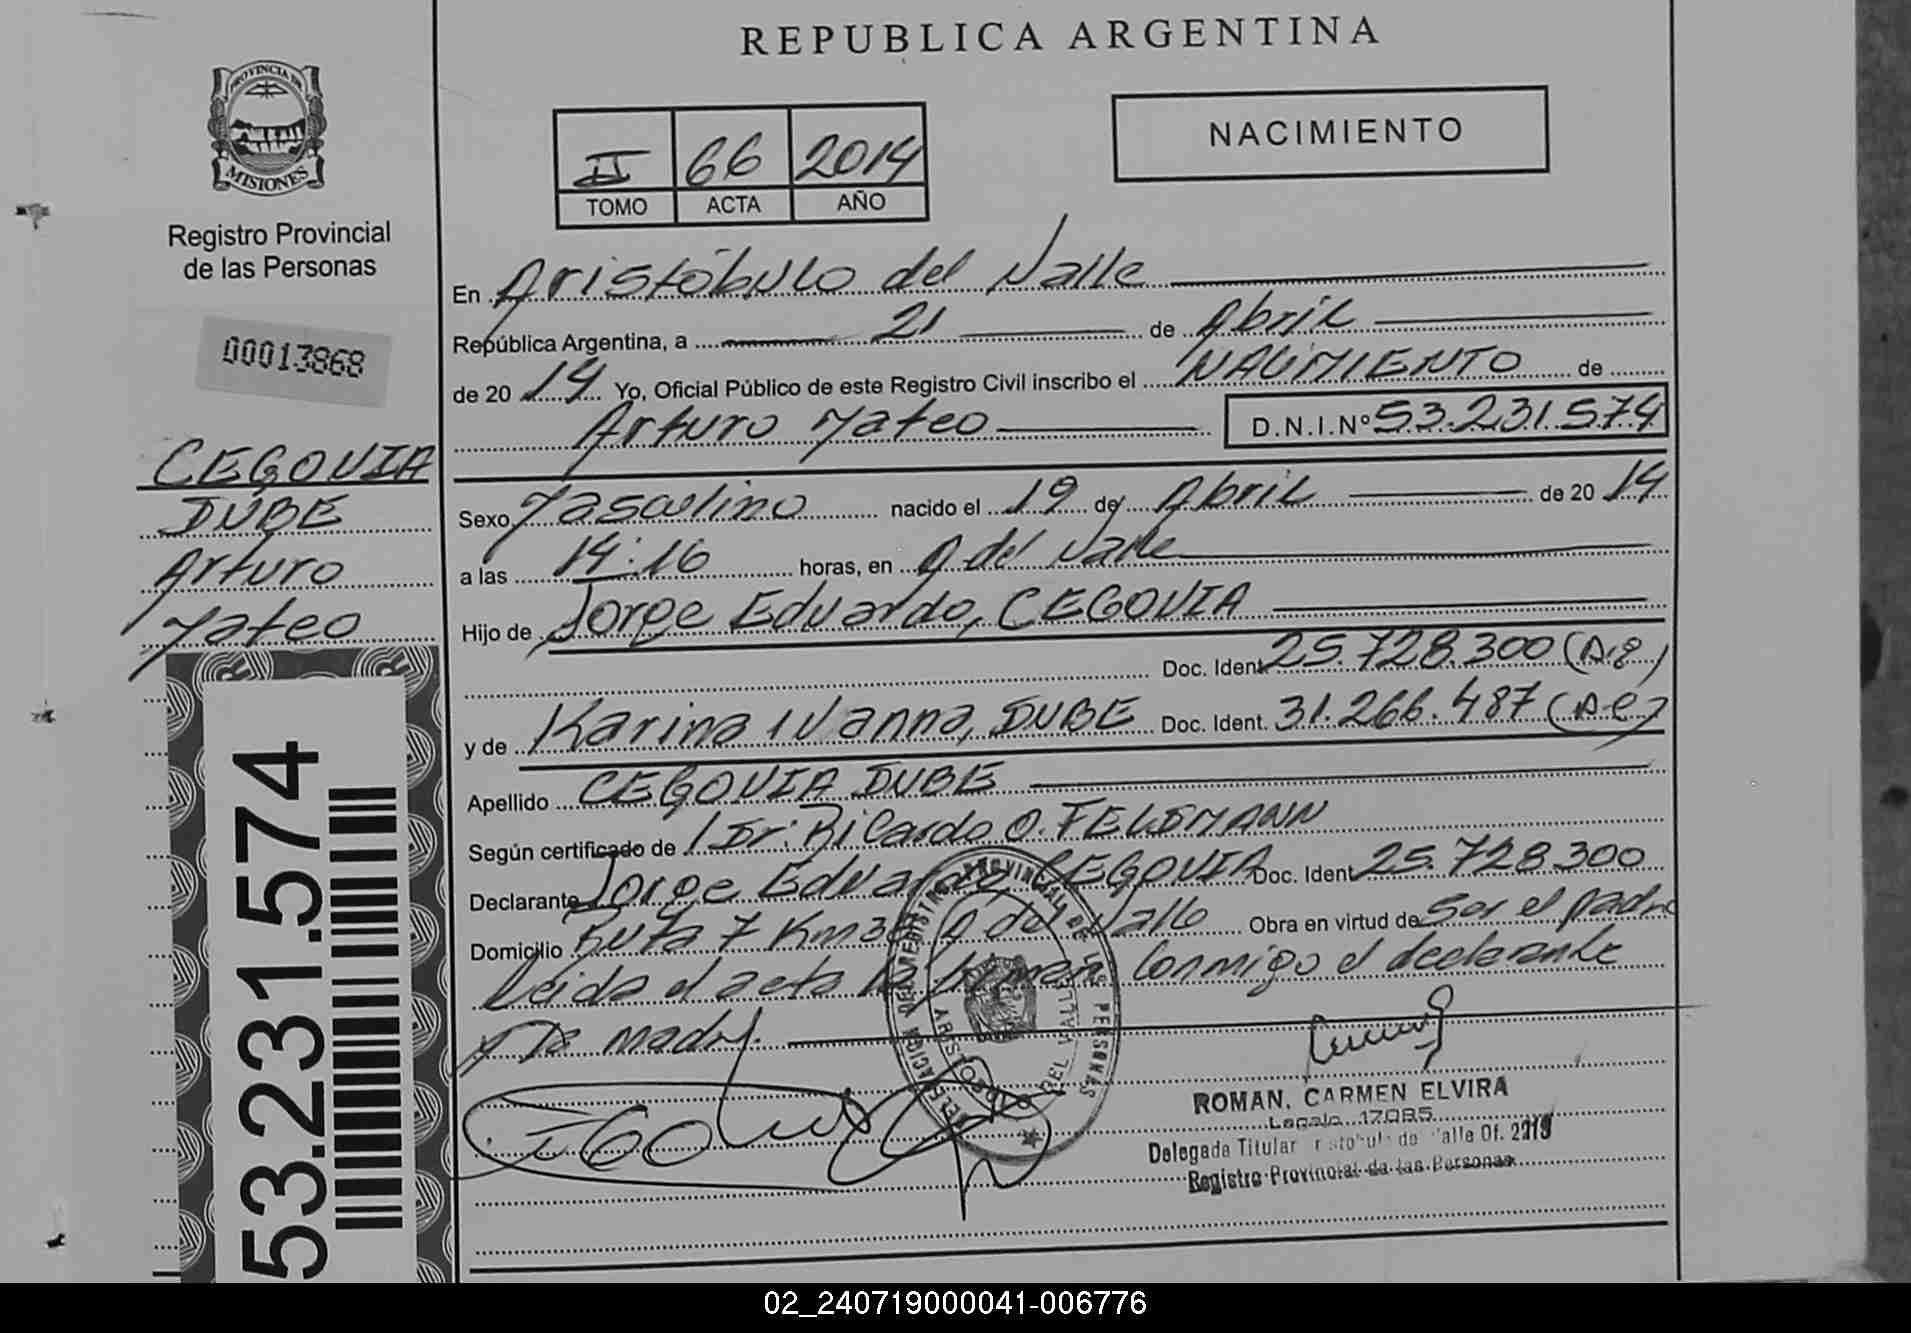 REPUBLICA ARGENTINA
PROVINCIA DE
MISIONES
Registro Provincial
de las Personas
00013868
CEGOVIA
DUBE
Arturo
Mateo
53.231.574
II 66 2014
TOMO ACTA AÑO
NACIMIENTO
En Aristóbulo del Valle
República Argentina, a 21 de Abril
de 2014 Yo, Oficial Público de este Registro Civil inscribo el NACIMIENTO de
Arturo Mateo D.N.I.Nº 53.231.574
Sexo Masculino nacido el 19 de Abril de 2014
a las 14:16 horas, en A del Valle
Hijo de Jorge Eduardo, CEGOVIA
Doc. Ident. 25.728.300
y de Karina Ivanna, DUBE Doc. Ident. 31.266.487
Apellido CEGOVIA DUBE
Según certificado de Dr. Ricardo O. FELDMANN
Declarante Jorge Eduardo CEGOVIA Doc. Ident. 25.728.300
Domicilio Ruta 7 Km A del Valle Obra en virtud de Ser el padre
Leida el acta la firman Conmigo el declarante
y la madre.
DELEGACION DEL REGISTRO PROVINCIAL DE LAS PERSONAS
ARISTOBULO DEL VALLE
ROMAN, CARMEN ELVIRA
Legajo 17085
Delegada Titular Of. 2219
Registro Provincial de las Personas
02_240719000041-006776